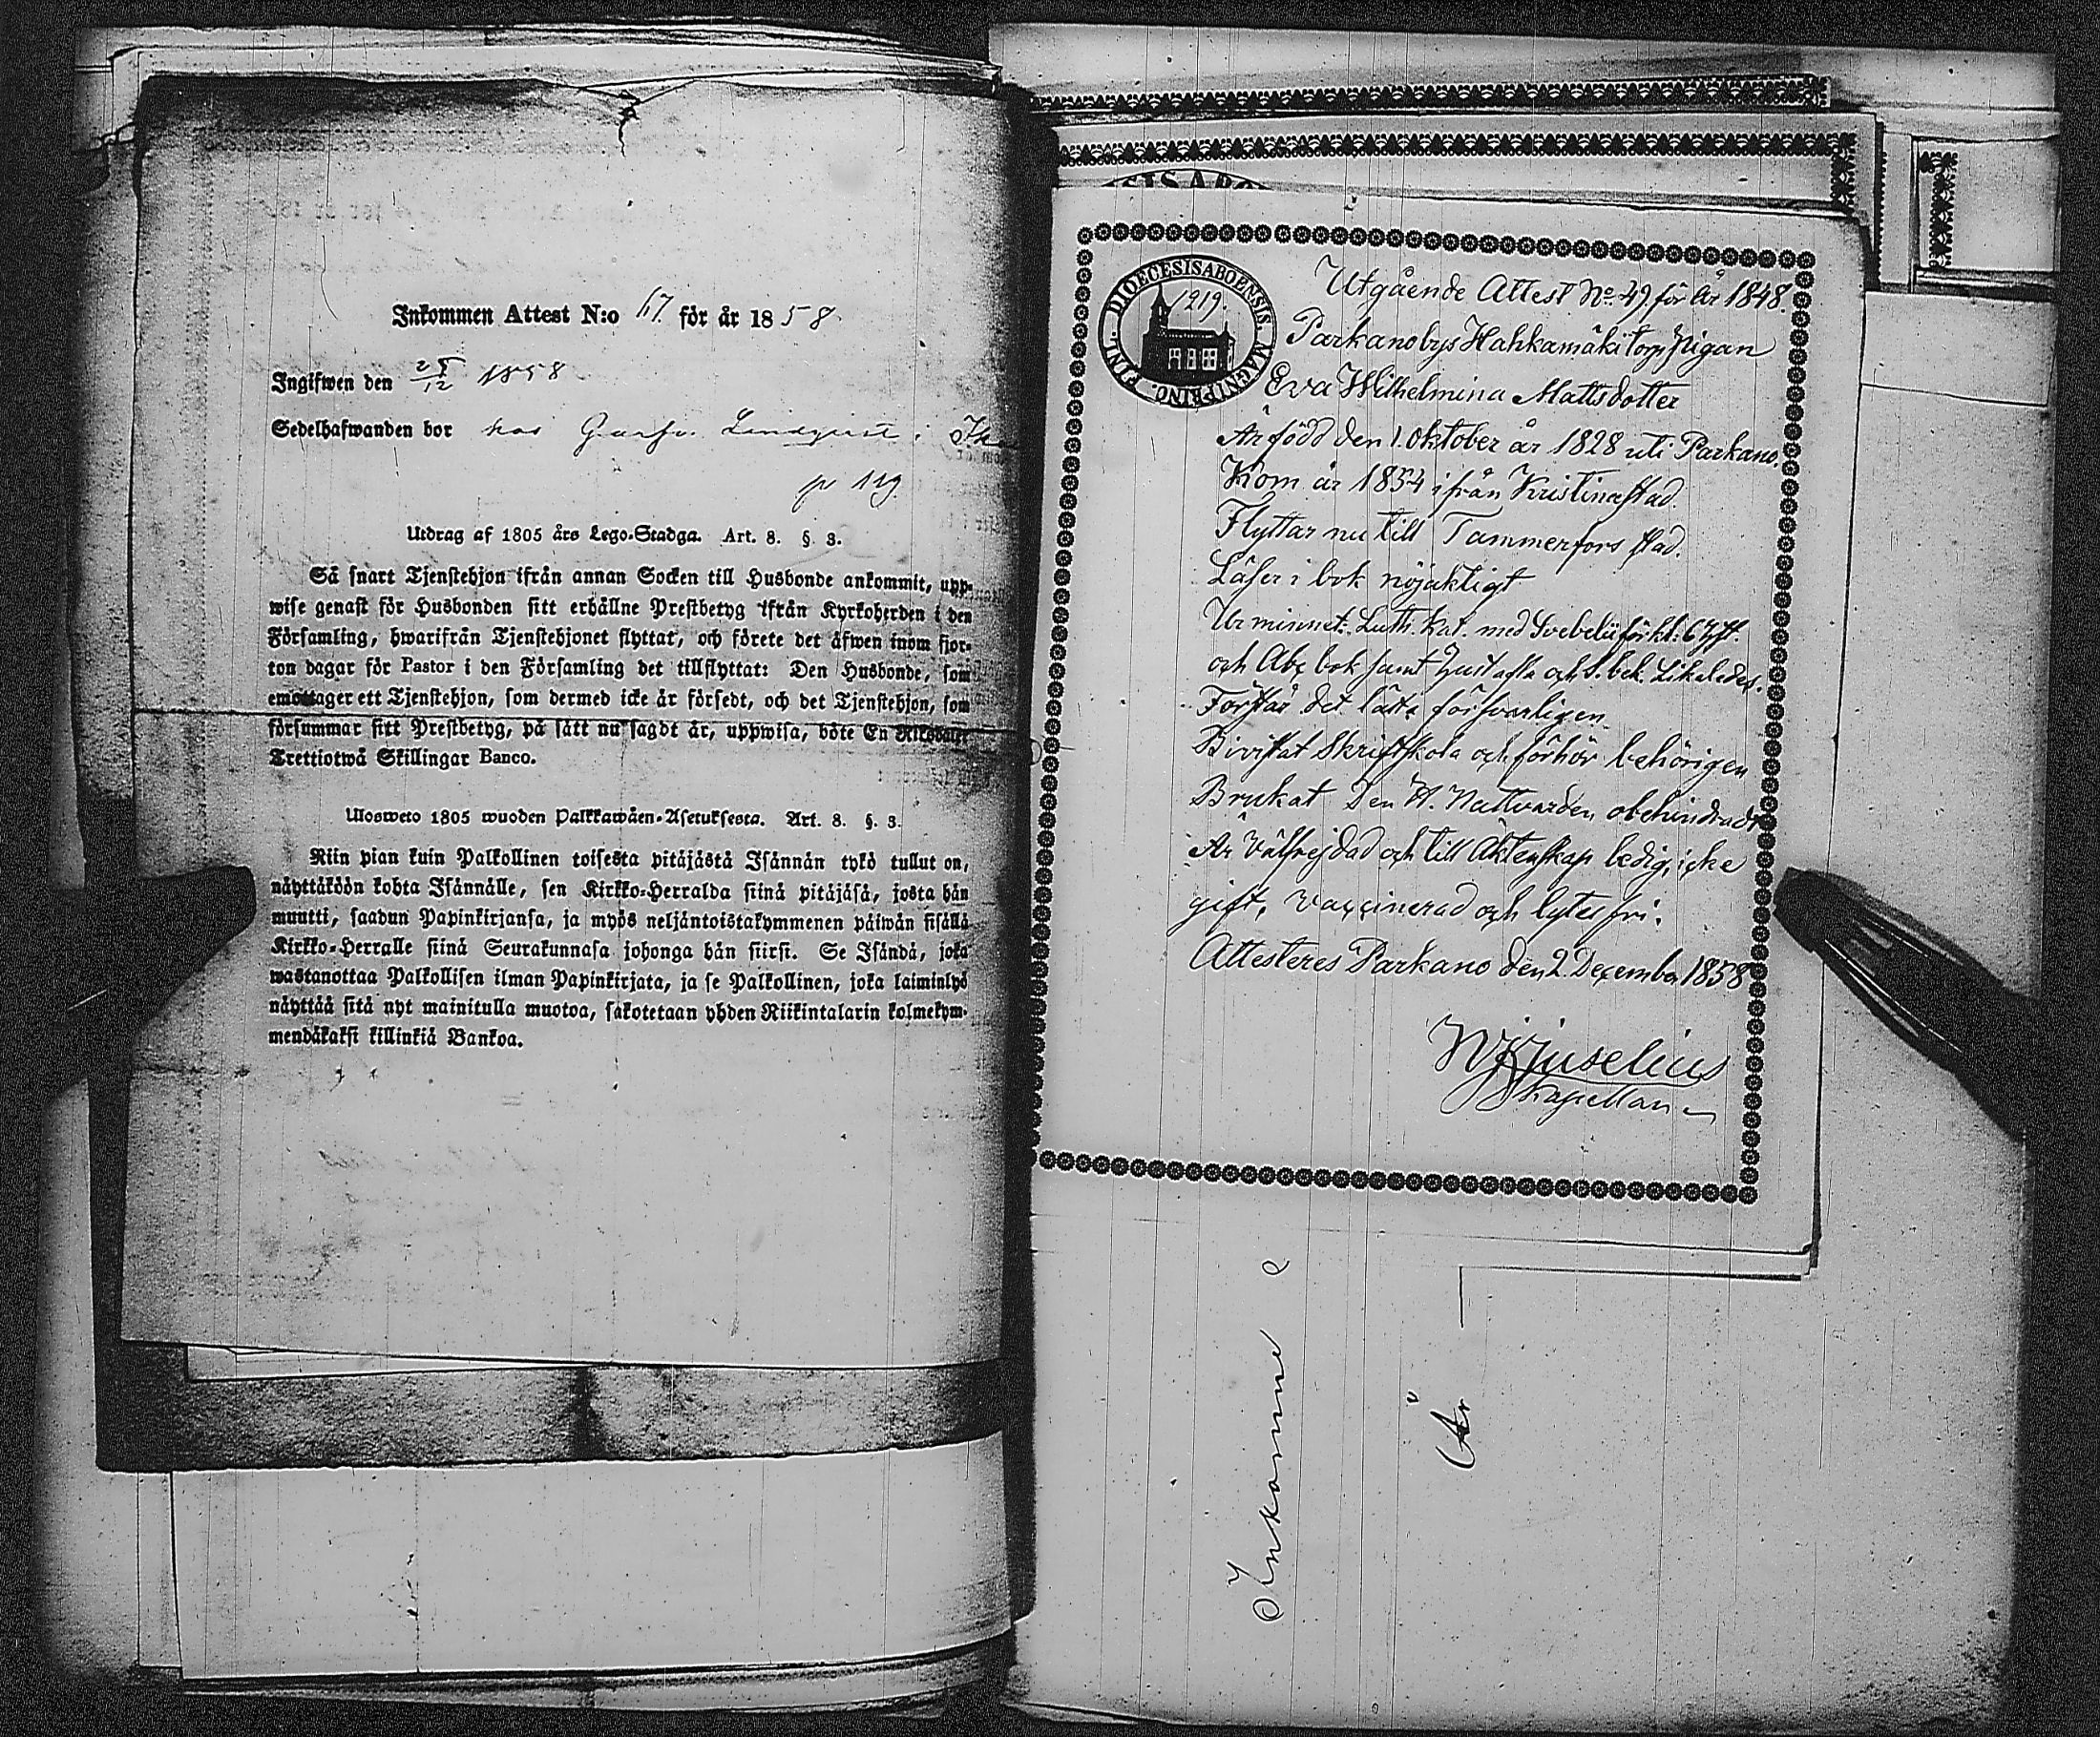 Inkommen Attest N:o 67 för år 1858.
Ingifwen den 28/12 1858
Sedelhafwanden bor hos Garfv. Lindqvist i
p 119.
Utdrag af 1805 års Lego-Stadga. Art. 8. §. 3.
Så snart Tjenstehjon ifrån annan Socken till Husbonde ankommit, upp-
wise genast för Husbonden sitt erhållne Prestbetyg ifrån Kyrkoherden i den
Församling, hwarifrån Tjenstehjonet flyttat, och förete det äfwen inom fjor-
ton dagar för Pastor i den Församling det tillflyttat: Den Husbonde, som
emottager ett Tjenstehjon, som dermed icke är försedt, och det Tjenstehjon, som
försummar sitt Prestbetyg, på sätt nu sagdt är, uppwisa, böte En Riksdaler
Trettiotwå Skillingar Banco.
Ulosweto 1805 wuoden Palkkawäen-Asetuksesta. Art. 8. §. 3.
Niin pian kuin Palkollinen toisesta pitäjästä Isännän tykö tullut on,
näyttäköön kohta Isännälle, sen Kirkko-Herralda siinä pitäjäsä, josta hän
muutti, saadun Papinkirjansa, ja myös neljäntoistakymmenen päiwän sisällä
Kirkko-Herralle siinä Seurakunnasa johonga hän siirsi. Se Isändä, joka
wastanottaa Palkollisen ilman Papinkirjata, ja se Palkollinen, joka laiminlyö
näyttää sitä nyt mainitulla muotoa, sakotetaan yhden Riikintalarin kolmekym-
mendäkaksi killinkiä Bankoa.
DIOECESIS ABOENSIS. MAGNI PRINC. FINL.
1919.
Utgående Attest No. 49 för år 1848.
Parkanobys Hahkamäki torp. pigan
Eva Wilhelmina Mattsdotter
Är född den 1. oktober år 1828 uti Parkano.
Kom år 1854 ifrån Kristinestad.
Flyttar nu till Tammerfors stad.
Läser i bok nöjaktigt
Ur minnet: Luth. Kat. med Svebelii förkl:
och Abc bok samt Hustafla och S. bek. Likaledes.
Förstår det lätta försvarligen
Bivistat Skriftskola och förhör behörigen
Brukat Den H. Nattvarden obehindradt
Är välfrejdad och till Äktenskap ledig, icke
gift, vaccinerad och lytesfri.
Attesteres Parkano den 2. December 1858
Juselius
Kapellan
Inkomne
År